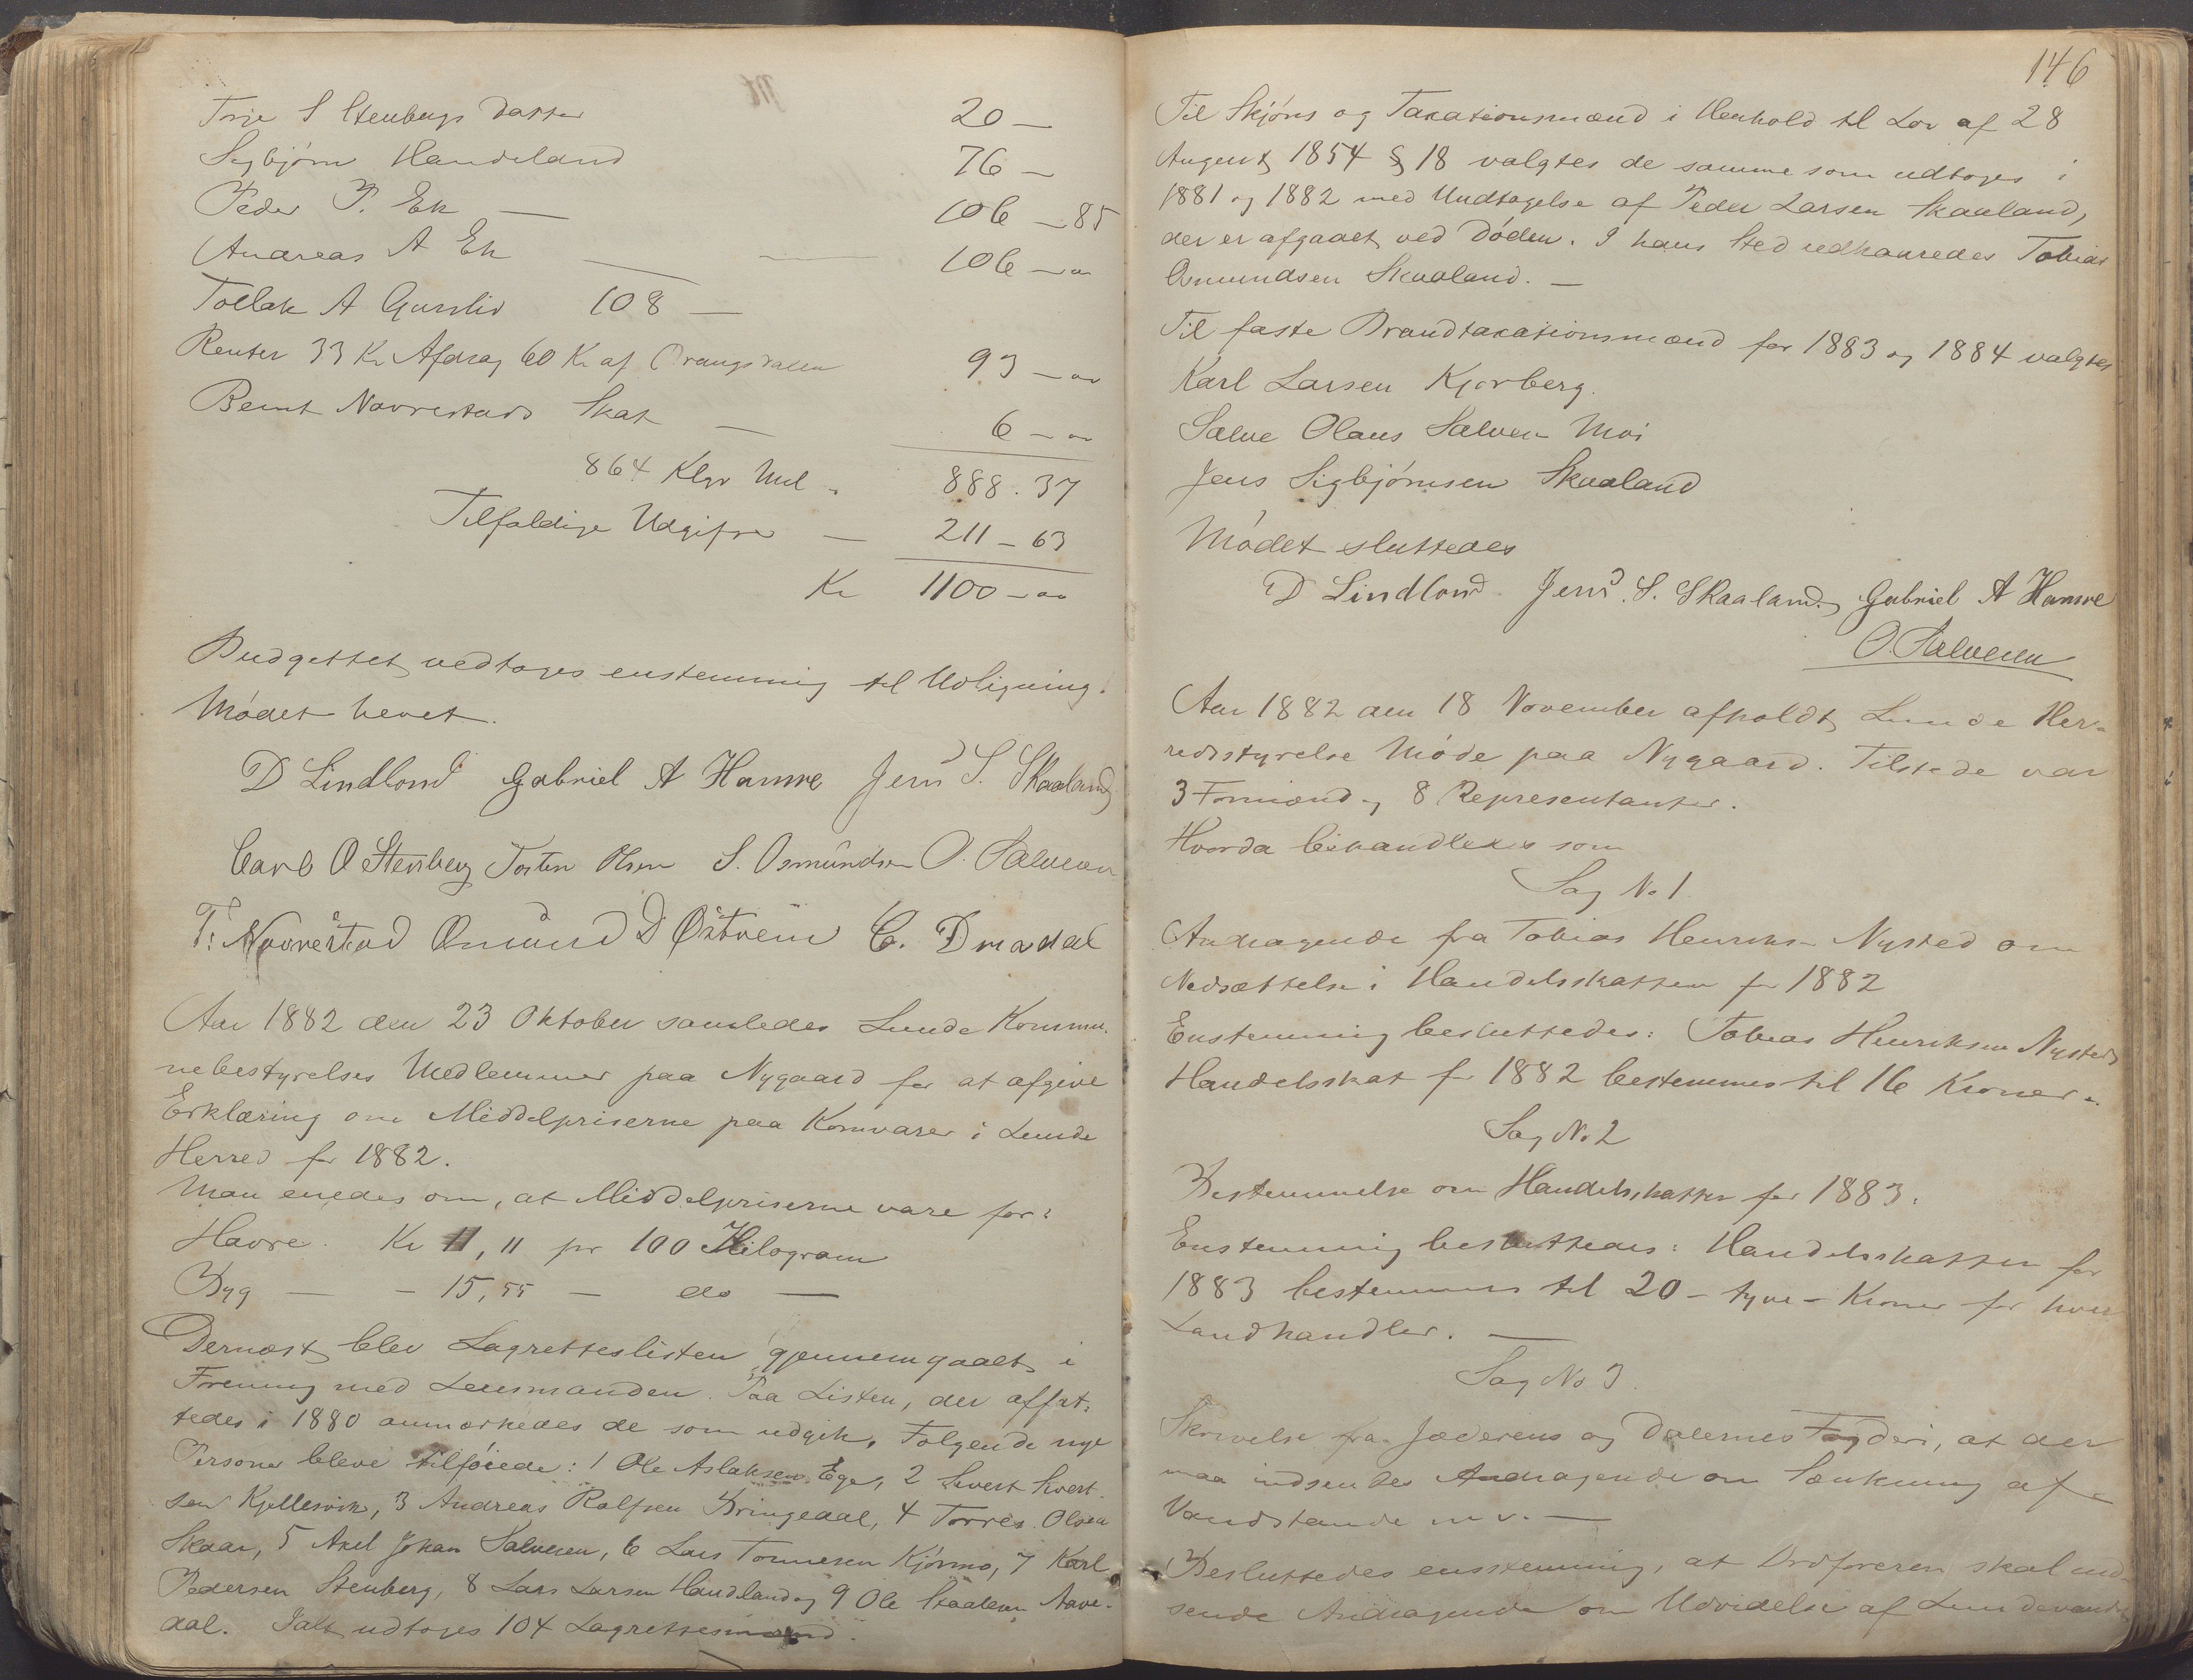 Terje S Stenbergs Datter 20 —
Sigbjørn Handeland 76 —
Peder P. Ek — 106 — 85
Andreas A Ek — 106 — "
Tollak A Gurslid 108 —
Renter 33 Kr Afdrag 60 Kr af Orrangsdalen 93 — "
Bernt Novrestads Skat — 6 — "
864 Klgr Mel - 888. 37
Tilfældige Udgifter — 211 — 63
Kr 1100 — "
Budgettet vedtoges enstemmig til Udligning.
Mødet hevet.
D Lindland Gabriel A Hamre Jens S. Skaaland
Carl O Stenberg Tosten Olsen S. Osmundsen O. Salvesen
T. Novrestad Omund D Østrem C. Dradal
Aar 1882 den 23 Oktober samledes Lunde Kommu-
nebestyrelses Medlemmer paa Nygaard for at afgive
Erklæring om Middelpriserne paa Kornvarer i Lunde
Herred for 1882.
Man enedes om, at Middelpriserne vare for:
Havre. Kr 11, 11 pr 100 Kilogram
Byg — - 15, 55 — do —
Dernæst blev Lagretteslisten gjennemgaaet i
Forening med Lensmanden. Paa Listen, der affat-
tedes i 1880 anmærkedes de som udgik. Følgende nye
Personer bleve tilføiede: 1 Ole Aslaksen Ege, 2 Sivert Sivert-
sen Kjellesvik, 3 Andreas Rolfsen Bringedal, 4 Torres Olsen
Skaar, 5 Axel Johan Salvesen, 6 Lars Tonnesen Kjørmo, 7 Karl
Pedersen Stenberg, 8 Lars Larsen Handeland og 9 Ole Staalesen Aave-
dal. Ialt udtoges 104 Lagrettesmænd.
146
Til Skjøns og Taxationsmænd i Henhold til Lov af 28
August 1854 § 18 valgtes de samme som udtoges i
1881 og 1882 med Undtagelse af Peder Larsen Skaaland,
der er afgaaet ved Døden. I hans Sted udkaaredes Tobias
Osmundsen Skaaland. —
Til faste Brandtaxationsmænd for 1883 og 1884 valgtes
Karl Larsen Kjørberg.
Salve Olaus Salvesen Moi
Jens Sigbjørnsen Skaaland
Mødet sluttedes
D Lindland Jens S. Skaaland Gabriel A Hamre
O. Salvesen
Aar 1882 den 18 November afholdt Lunde Her-
redsstyrelse Møde paa Nygaard. Tilstede var
3 Formænd og 8 Representanter.
Hvorda behandledes som
Sag No 1.
Andragende fra Tobias Henriksen Nysted om
Nedsættelse i Handelsskatten for 1882
Enstemmig besluttedes: Tobias Henriksen Nysteds
Handelsskat for 1882 bestemmes til 16 Kroner.
Sag No. 2
Bestemmelse om Handelsskatten for 1883.
Enstemmig besluttedes: Handelsskatten for
1883 bestemmes til 20 - tyve - Kroner for hver
Landhandler. —
Sag No 3.
Skrivelse fra Jæderens og Dalernes Fogderi, at der
maa indsendes Andragende om Sænkning af
Vandstande m v. —
Besluttedes enstemmig, at Ordføreren skal ind-
sende Andragende om Udvidelse af Lundevandet